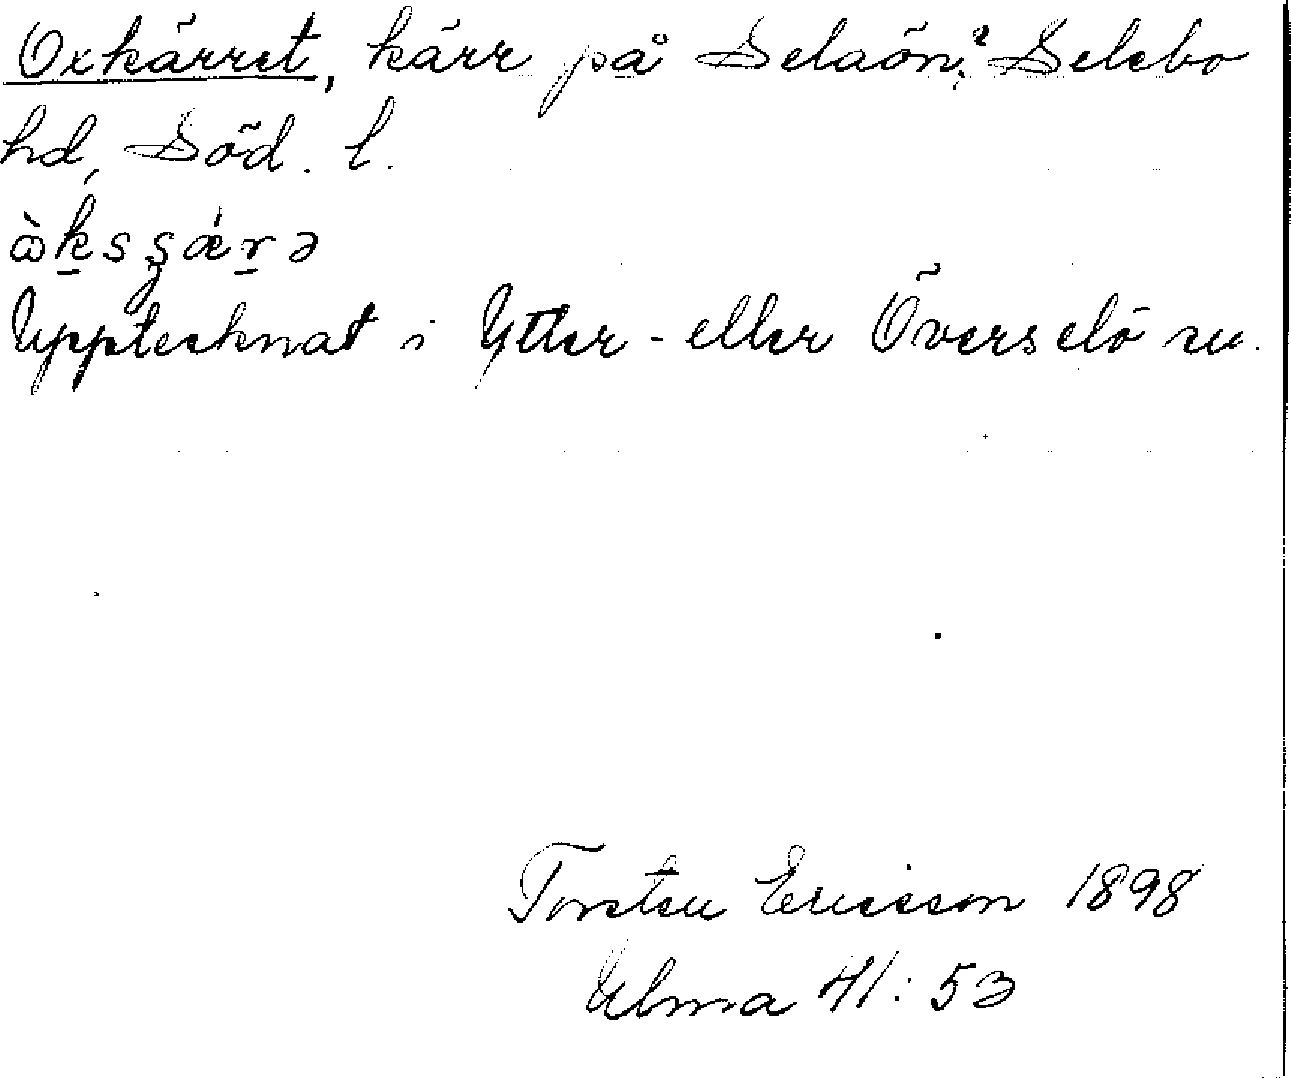 Oxkärret, kärr på Selaön? Selebo
hd, Söd. l.
Upptecknat i Ytter- eller Överselö sn.
Torsten Ericsson 1898
Ulma 41:53